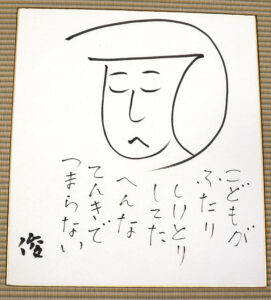 こどもが
ふたり
しりとり
してた
へんな
てんきで
つまらない
俊